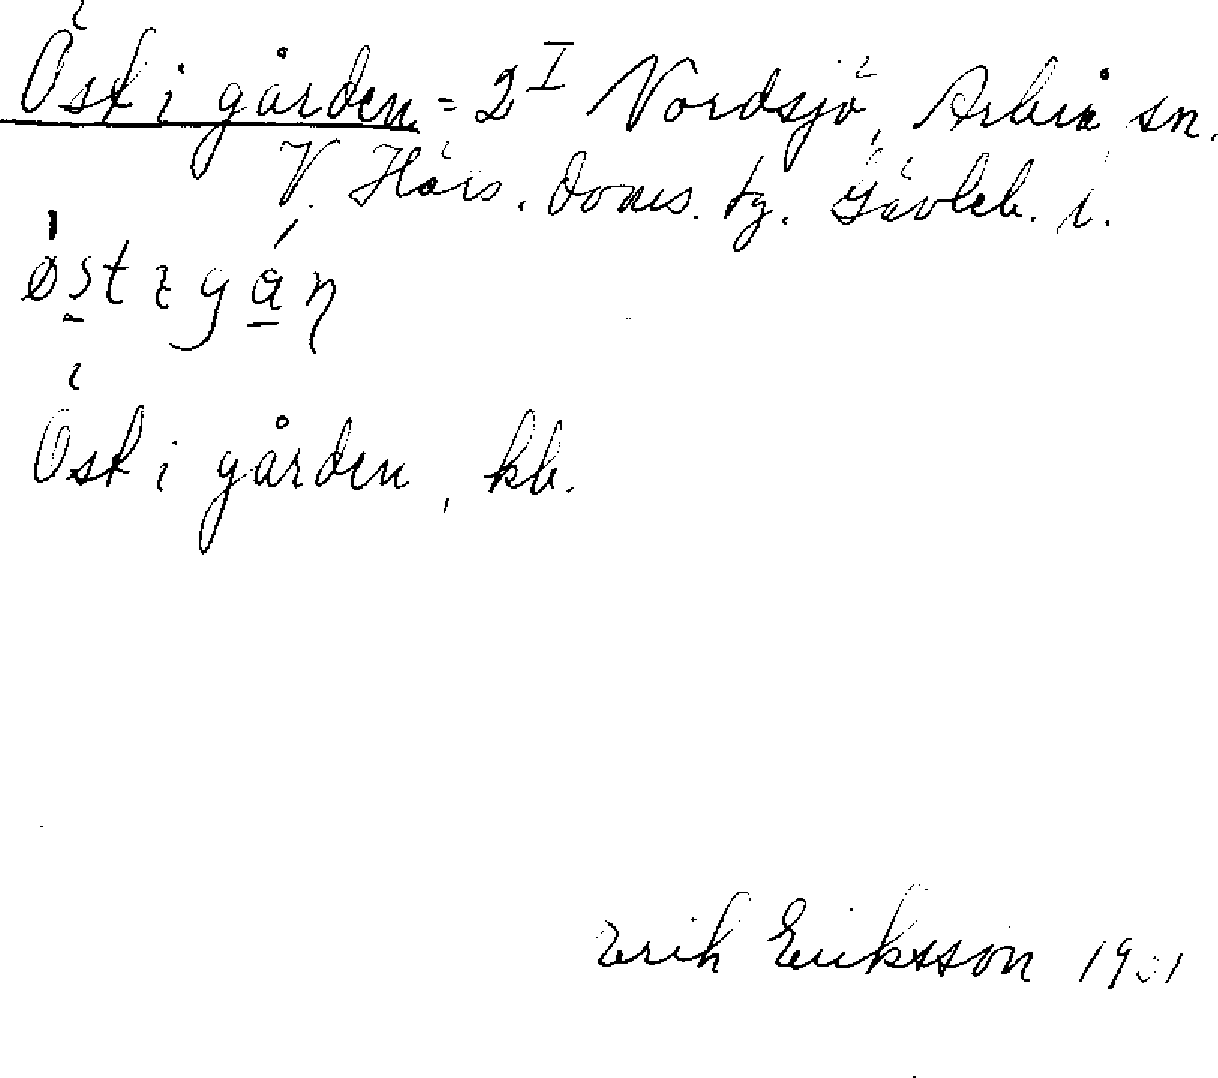 Öst i gården = 2 I Nordsjö, Arbrå sn.
V. Häls. Doms. tg. Gävleb. l.
Öst i gården, kb.
Erik Eriksson